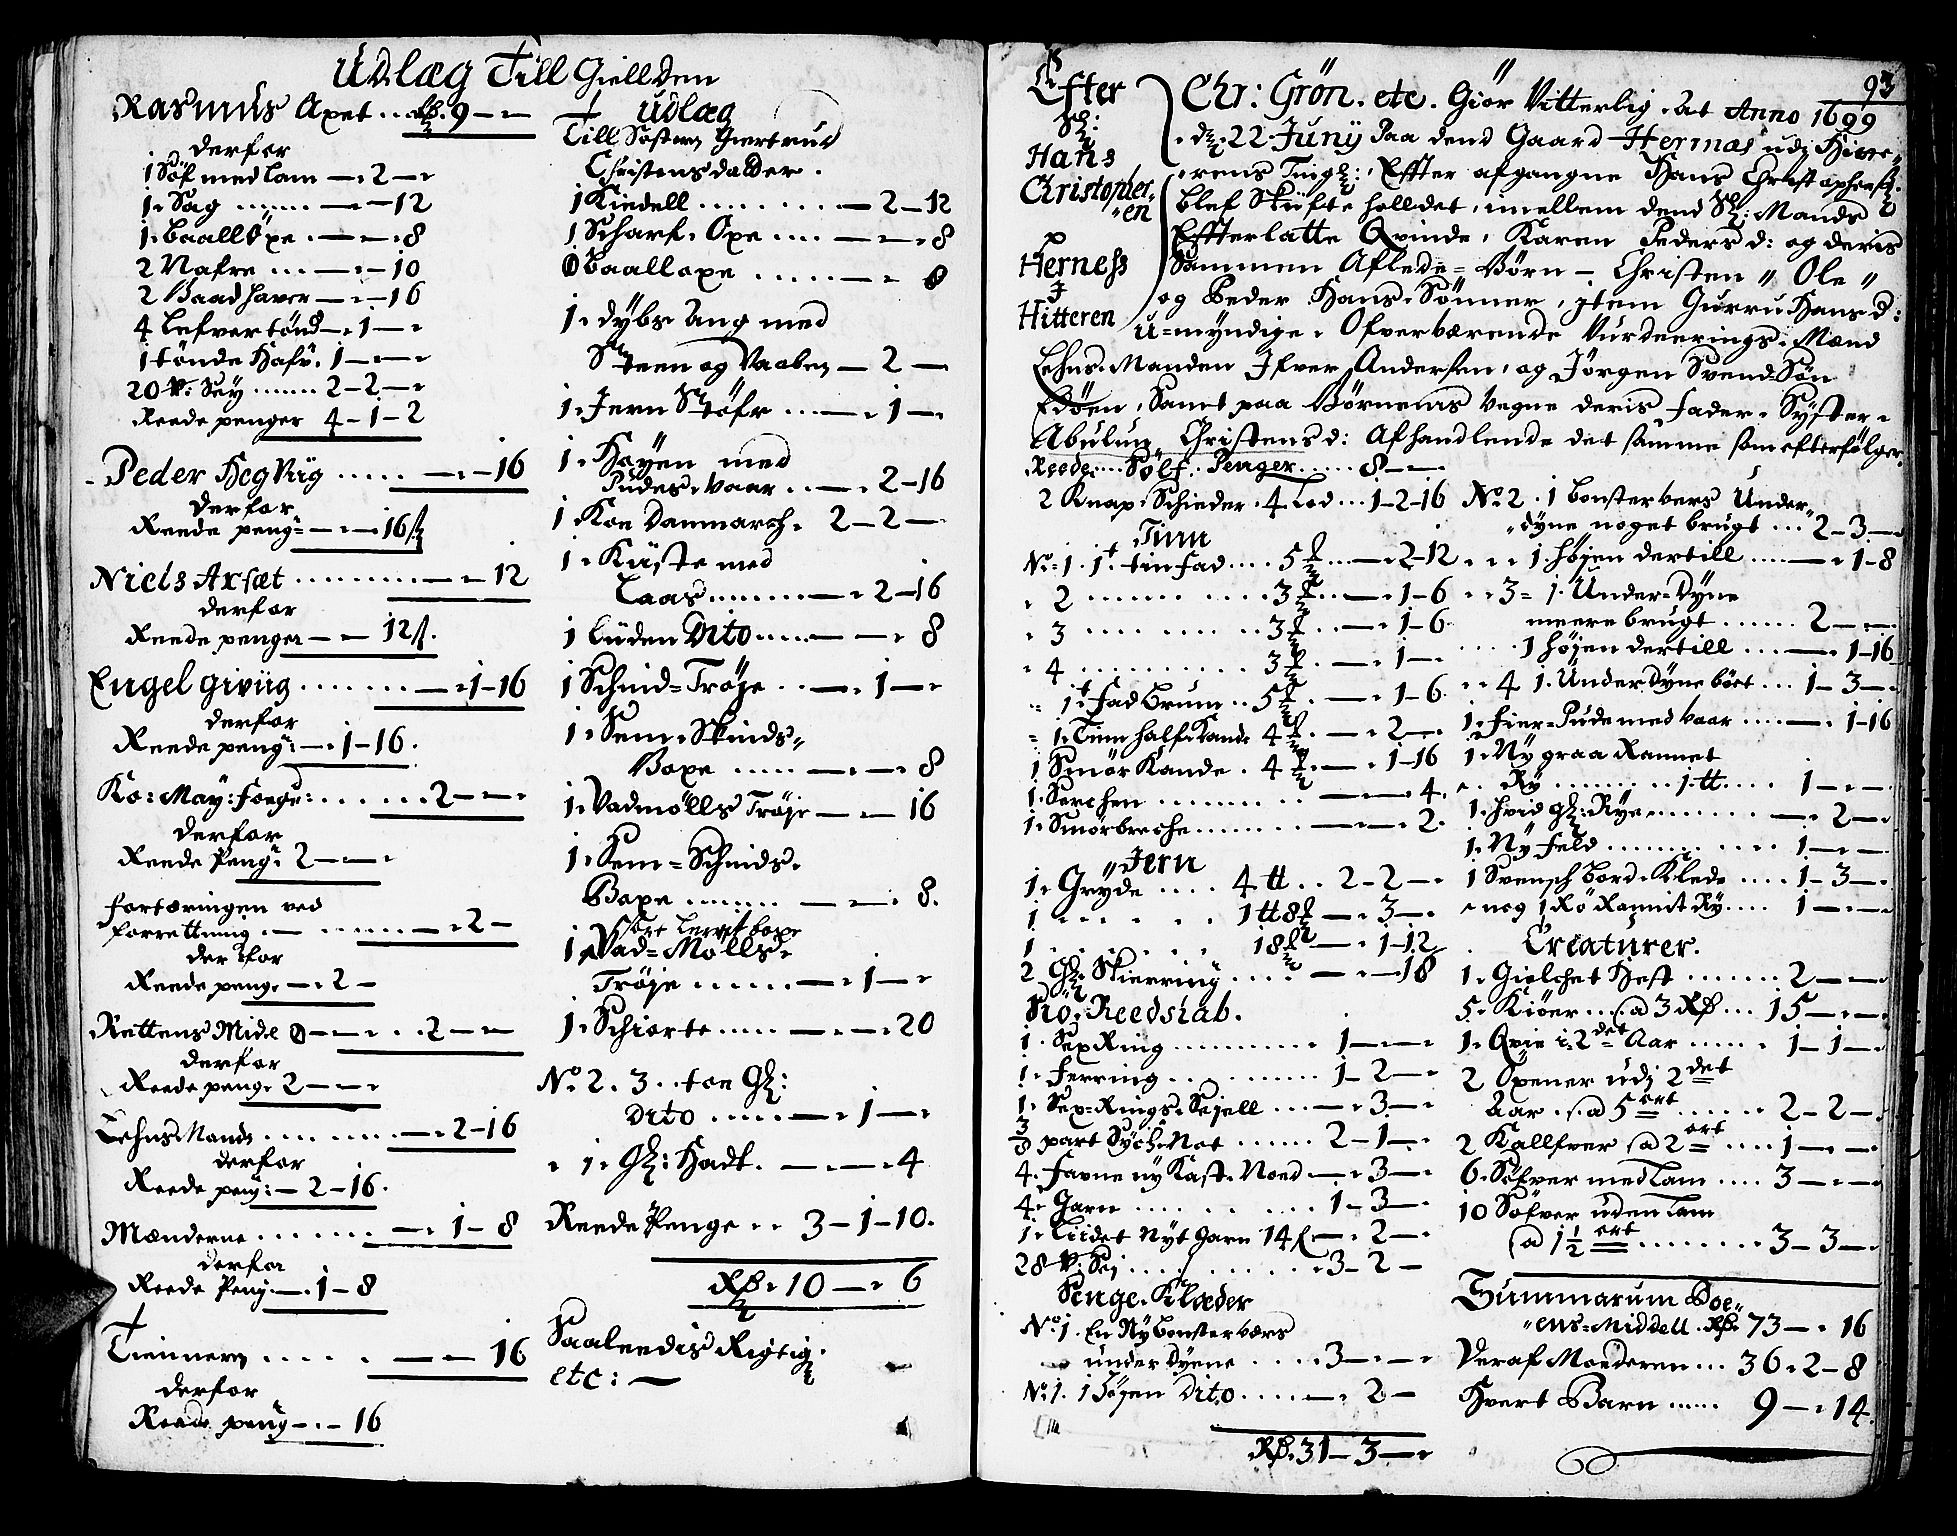 Udlæg Till Gielden
Rasmus Axet .. Rß. 9 — —
derfor
1 Söf med lam — . 2 — .
1. Sag ....... — . — 12
1. baall Öxe . — . — . 8
2 Nafre ... — . — 10
2 Baadhaver — . — 16
4 Lefvertönd — . 1 — .
1 tönde Hafr. 1 — . — .
20 V. Sey ...... 2 – 2 — .
Reede penger 4 – 1 – 2
Peder Hegviig ..... — . — 16
derfor
Reede peng: — . — 16 ß
Niels Axsæt ......... — . — 12
derfor
Reede penger — . — 12 ß.
Engel giviig ....... — . 1 – 16
derfor
Reede peng: — . 1 – 16.
Ko: May: foegd: ...... 2 — . — .
derfor
Reede Peng: 2 — . — .
fortæringen ved
forrettning . — ....... — . 2 —
derfor
Reede peng. — . 2 —
Rettens Midel — . — . .. 2 — . —
derfor
Reede peng. 2 — . — .
Lehns Mand ......... — . 2 – 16
derfor
Reede peng: — 2 – 16.
Mænderne ....... — . 1 – 8
derfor
Reede Peng. — . 1 – 8
Tiennern ...... — . — 16
derfor
Reede peng — . — 16
udlæg
Till Søstern Giertrud
Christensdaatter .
1 Kiedell ........ — 2 – 12
1 Scharf. Oxe .... — . — . 8
baalloxe ...... — .
1. dybs Ang med
Steen og Vaaben — 2 —
1. Jern Støfr ... — . 1 — .
1. Høyen med
Pudes. Vaar .. — . 2 – 16
1. Koe Danmarch. 2 – 2 —
1. Kiiste med
Laas ....... — . 2 – 16
1 liiden Dito ..... — . — . 8
1 Schind = Trøje .. — . 1 — .
1. Sem. Skinds
Boxe ..... — . — . 8
1. Vadmølls Trøje — . — 16
1. Sem = Schinds.
Boxe ....... — . — . 8.
1 Vad = Mølls.
Trøje ...... — . 1 — .
1. Schiorte ..... — . — . 20
No. 2. 3. toe Gl:
Dito ..... — . 1 — .
1. Gl: Hadt. — . — . 4
Reede Penge .. 3 – 1 – 10.
Rß. 10 — . 6
Saaleedis Rigtig.
etc: —
93
Efter
Sl:
Hans
Christopher
en
Herness
J
Hitteren
Chr: Grön. etc. Giör Vitterlig. at Anno 1699
d. 22 Juny Paa dend Gaard Hermas udi Hitte
rens Tingl: Efter afgangne Hans Christophers.
blef Skifte holldet, imellem dend Sl: Mands
Effterlatte Qvinde, Karen Pedersd: og deris
Sammen Aflede = Börn — Christen " Ole "
og Peder Hans. Sönner, jtem Gurru Hansd:
u = myndige. Ofverværende Vurderings. Mænd
Lehns. Manden Ifver Andersen, og Jörgen Svend = Sön
Edöen, Samt paa Börnenis Vegne deris Fader. Syster.
Abulun Christensd: Afhandlende det samme som efterfölger
Reede .... Sölf. Penger ...... 8 — . —
2 Knap. Schieder. 4 Lod ... 1 – 2 – 16
Tinn
No. 1. 1. tinfad .... 5 ℔ .. — . 2 – 12
2 ....... 3 ℔ .. — . 1 – 6
3 ....... 3 ℔ .. — . 1 – 6
4 ....... 3 ℔ . — . 1 — .
1. Fad Brum .. 5 ℔ . — . 1 – 6.
1. Tinn halfkande 4 ℔ . — . 2 — .
1 Smör Kande . 4 ℔ . — . 1 – 16
1. Serchen ........ — . — . 4.
1. Smörbreche ....... — . — . 2.
Jern
1. Gryde .... 4 tt .. 2 – 2 — .
1 ..... 1 tt 8 ℔ — . 3 — .
1 ..... 18 ℔ — . 1 – 12
2 Gl. Skierring ... — . — . 18
Sö. Reedskab.
1. Sex Ring .......... 1 — . — .
1. Ferring .......... 1 – 2 — .
1. Sex = Rings. Sejell ... — . 3 — .
3/8 part Sych. Not ...... 2 – 1 — .
4. Favne ny Kast. Noed — . 3 — .
4. Garn .......... 1 – 3 — .
1. Liidet Nyt Garn 14 f — . 2 — .
28 V. Sej .......... 3 – 2 —
Senge. Klæder
No. 1. En Ny bonsterværs
under dyene .... 3 — . — .
No. 1. 1 Höjen Dito .... — . 2 —
Rß. 31 – 3 — .
No. 2. 1 bonstervers Under
dyne noget brugt ... 2 – 3 — .
1. höjen dertill ..... — . 1 – 8
3 = 1. Under = Dyne
meere brugt ...... 2 — . — .
1 höjen dertill ... — . 1 – 16
4 1. Underdyne böet ... 1 – 3 — .
1. Fier = Pude med vaar .... — . 1 – 16
1. Ny graa Rannet
Ry ......... 1. tt .... 1 — . — .
1. hvid gl: Rye ....... — . 2 — .
1. Ny Feld .......... 1 — . — .
1 Svensch bord. Klede .... 1 – 3 — .
nog 1 Rö Rannit Ry .... 1 — . — .
Creaturer.
1. Gielchet Hest ....... 2 — . — .
5. Kiöer ... a 3 Rß ... 15 — . — .
1. Qvie i 2det Aar ...... 1 – 1 — .
2 Oxener udj 2det
Aar .. a 5 ort ...... 2 – 2 — .
2 Kallfver a 2 ort .... 1 — . — .
6. Söfver med lam .... 3 — . — .
10 Söfver uden lam
a 1 1/2 ort ........ 3 – 3 — .
Summarum Boe
ens = Middell . Rß. 73 — . 16
Deraf Moederen ... 36. 2 – 8
Hvert Barn ..... 9 — . 14.